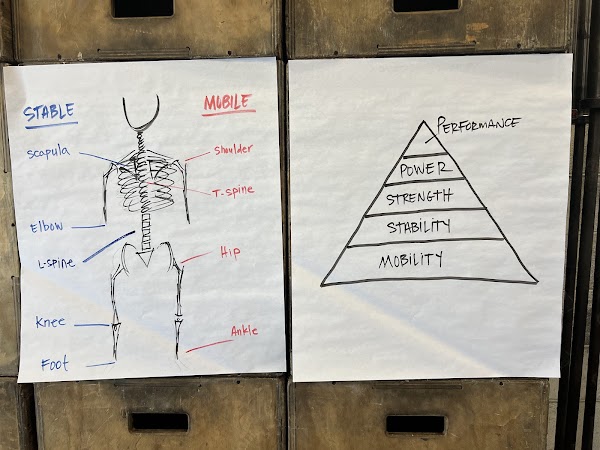 STABLE
MOBILE
Scapula
Shoulder
T-spine
Elbow
L-spine
Hip
Knee
Ankle
Foot
PERFORMANCE
POWER
STRENGTH
STABILITY
MOBILITY